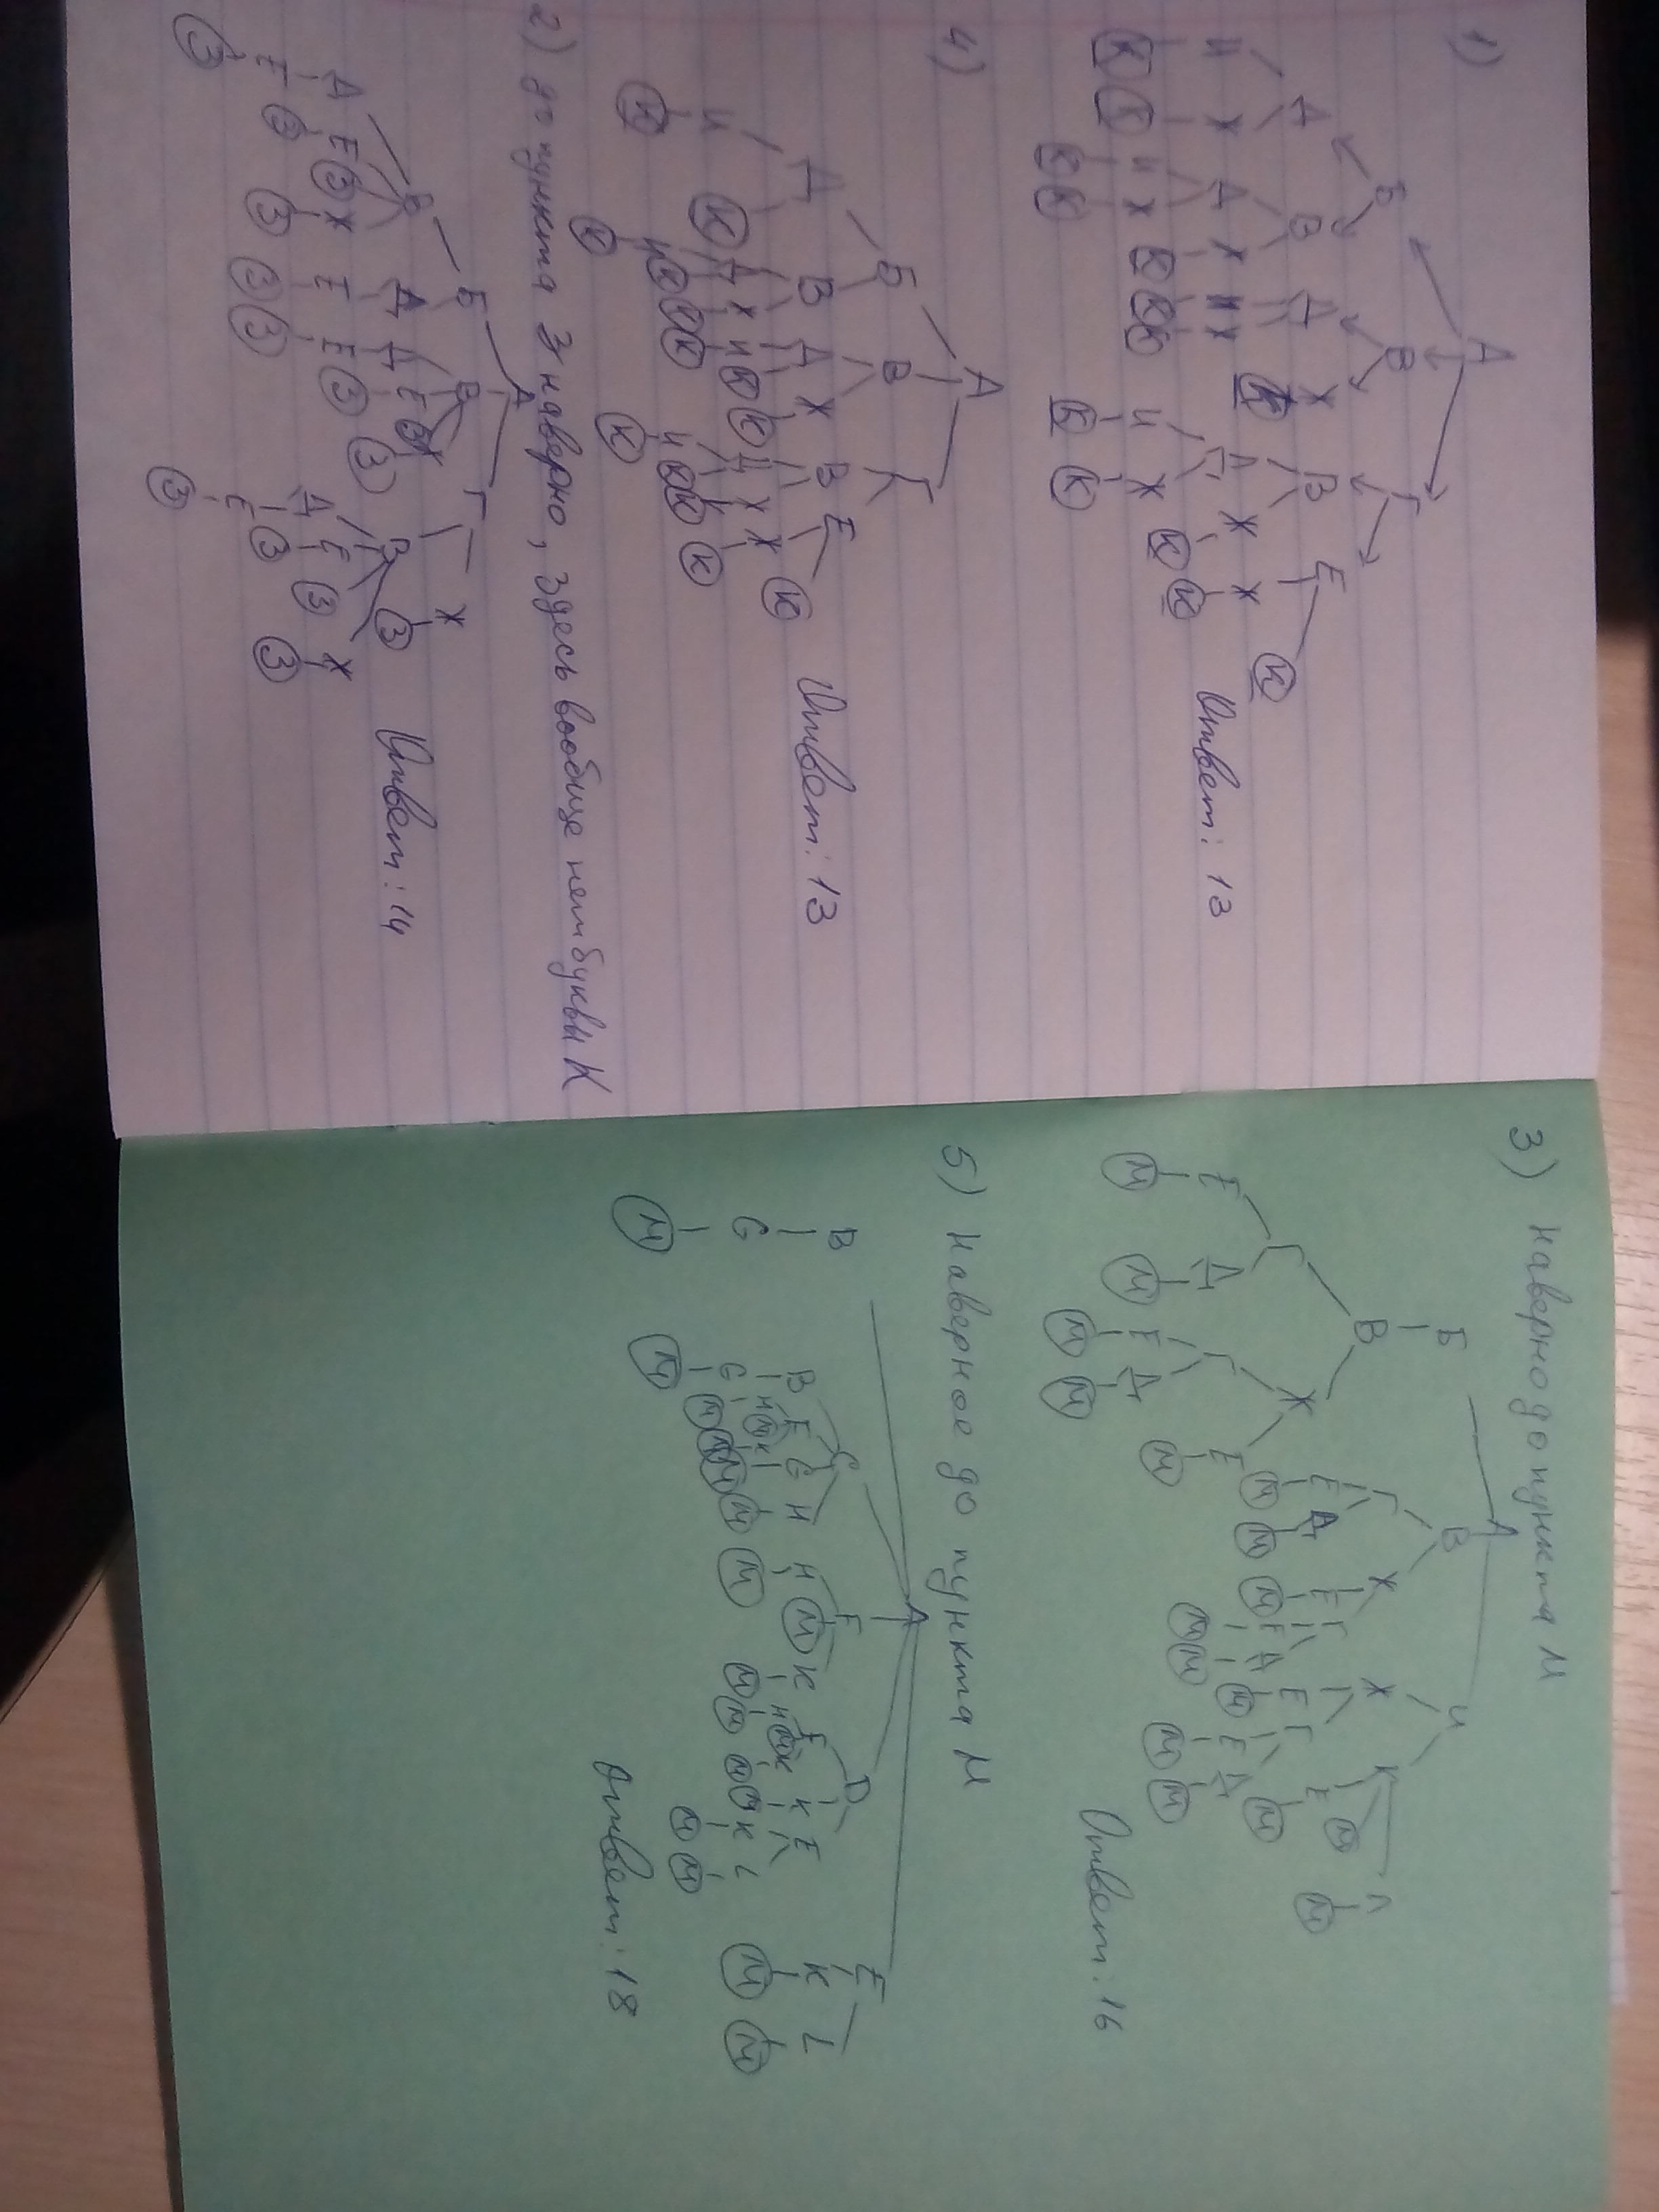 1)
А
Б В Г
Д В Д Ж В Е
И Ж Д Ж И Ж К Д Ж Ж К
К К И Ж К К К И Ж К К
К К К К
Ответ: 13
4)
А
Б В Г
Д В Д Ж В Е
И К Д Ж И К К Д Ж Ж К
К И К К К И К К К К
К К
Ответ: 13
2) до пункта З наверно, здесь вообще нет буквы К
А
Б В Г
В Д Д Е З Ж В Ж
Д Е З Ж Е Е З З Д Е З З
Е З З З З Е З З
З З
Ответ: 14
3) Наверно до пункта М
А
Б В И
В Г Ж Ж К
Г Ж Е Д Е Г Е Г Е М Л
Е Д Г Е М М М Е Д М Е Д М М
М М Е Д М М М М М
М М
Ответ: 16
5) Наверное до пункта М
А
B C F D E
G B F G H H M K F K E K L
M G H M K M M M M H M K M K L M M
M M M M M M M
Ответ: 18